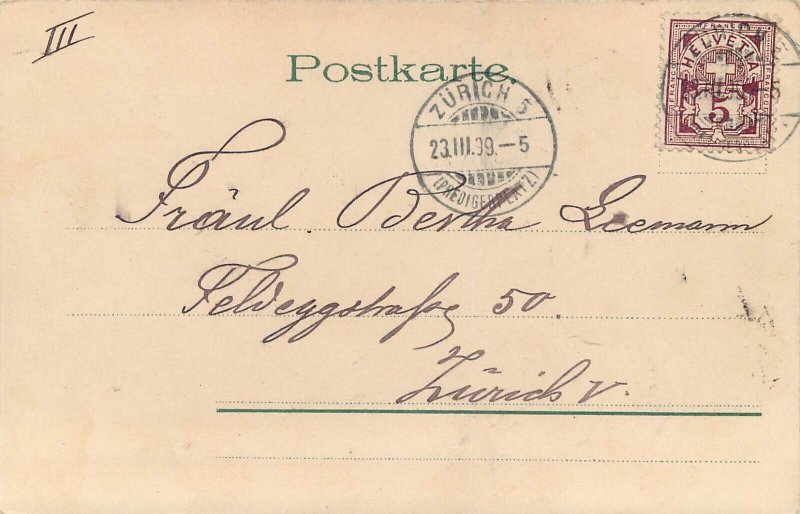 III
Postkarte.
FRANCO
HELVETIA
5
ZÜRICH 5
23.III.99.–5
(PREDIGERPLATZ)
Fräul. Bertha Leemann
Feldeggstraße 50.
Zürich V.